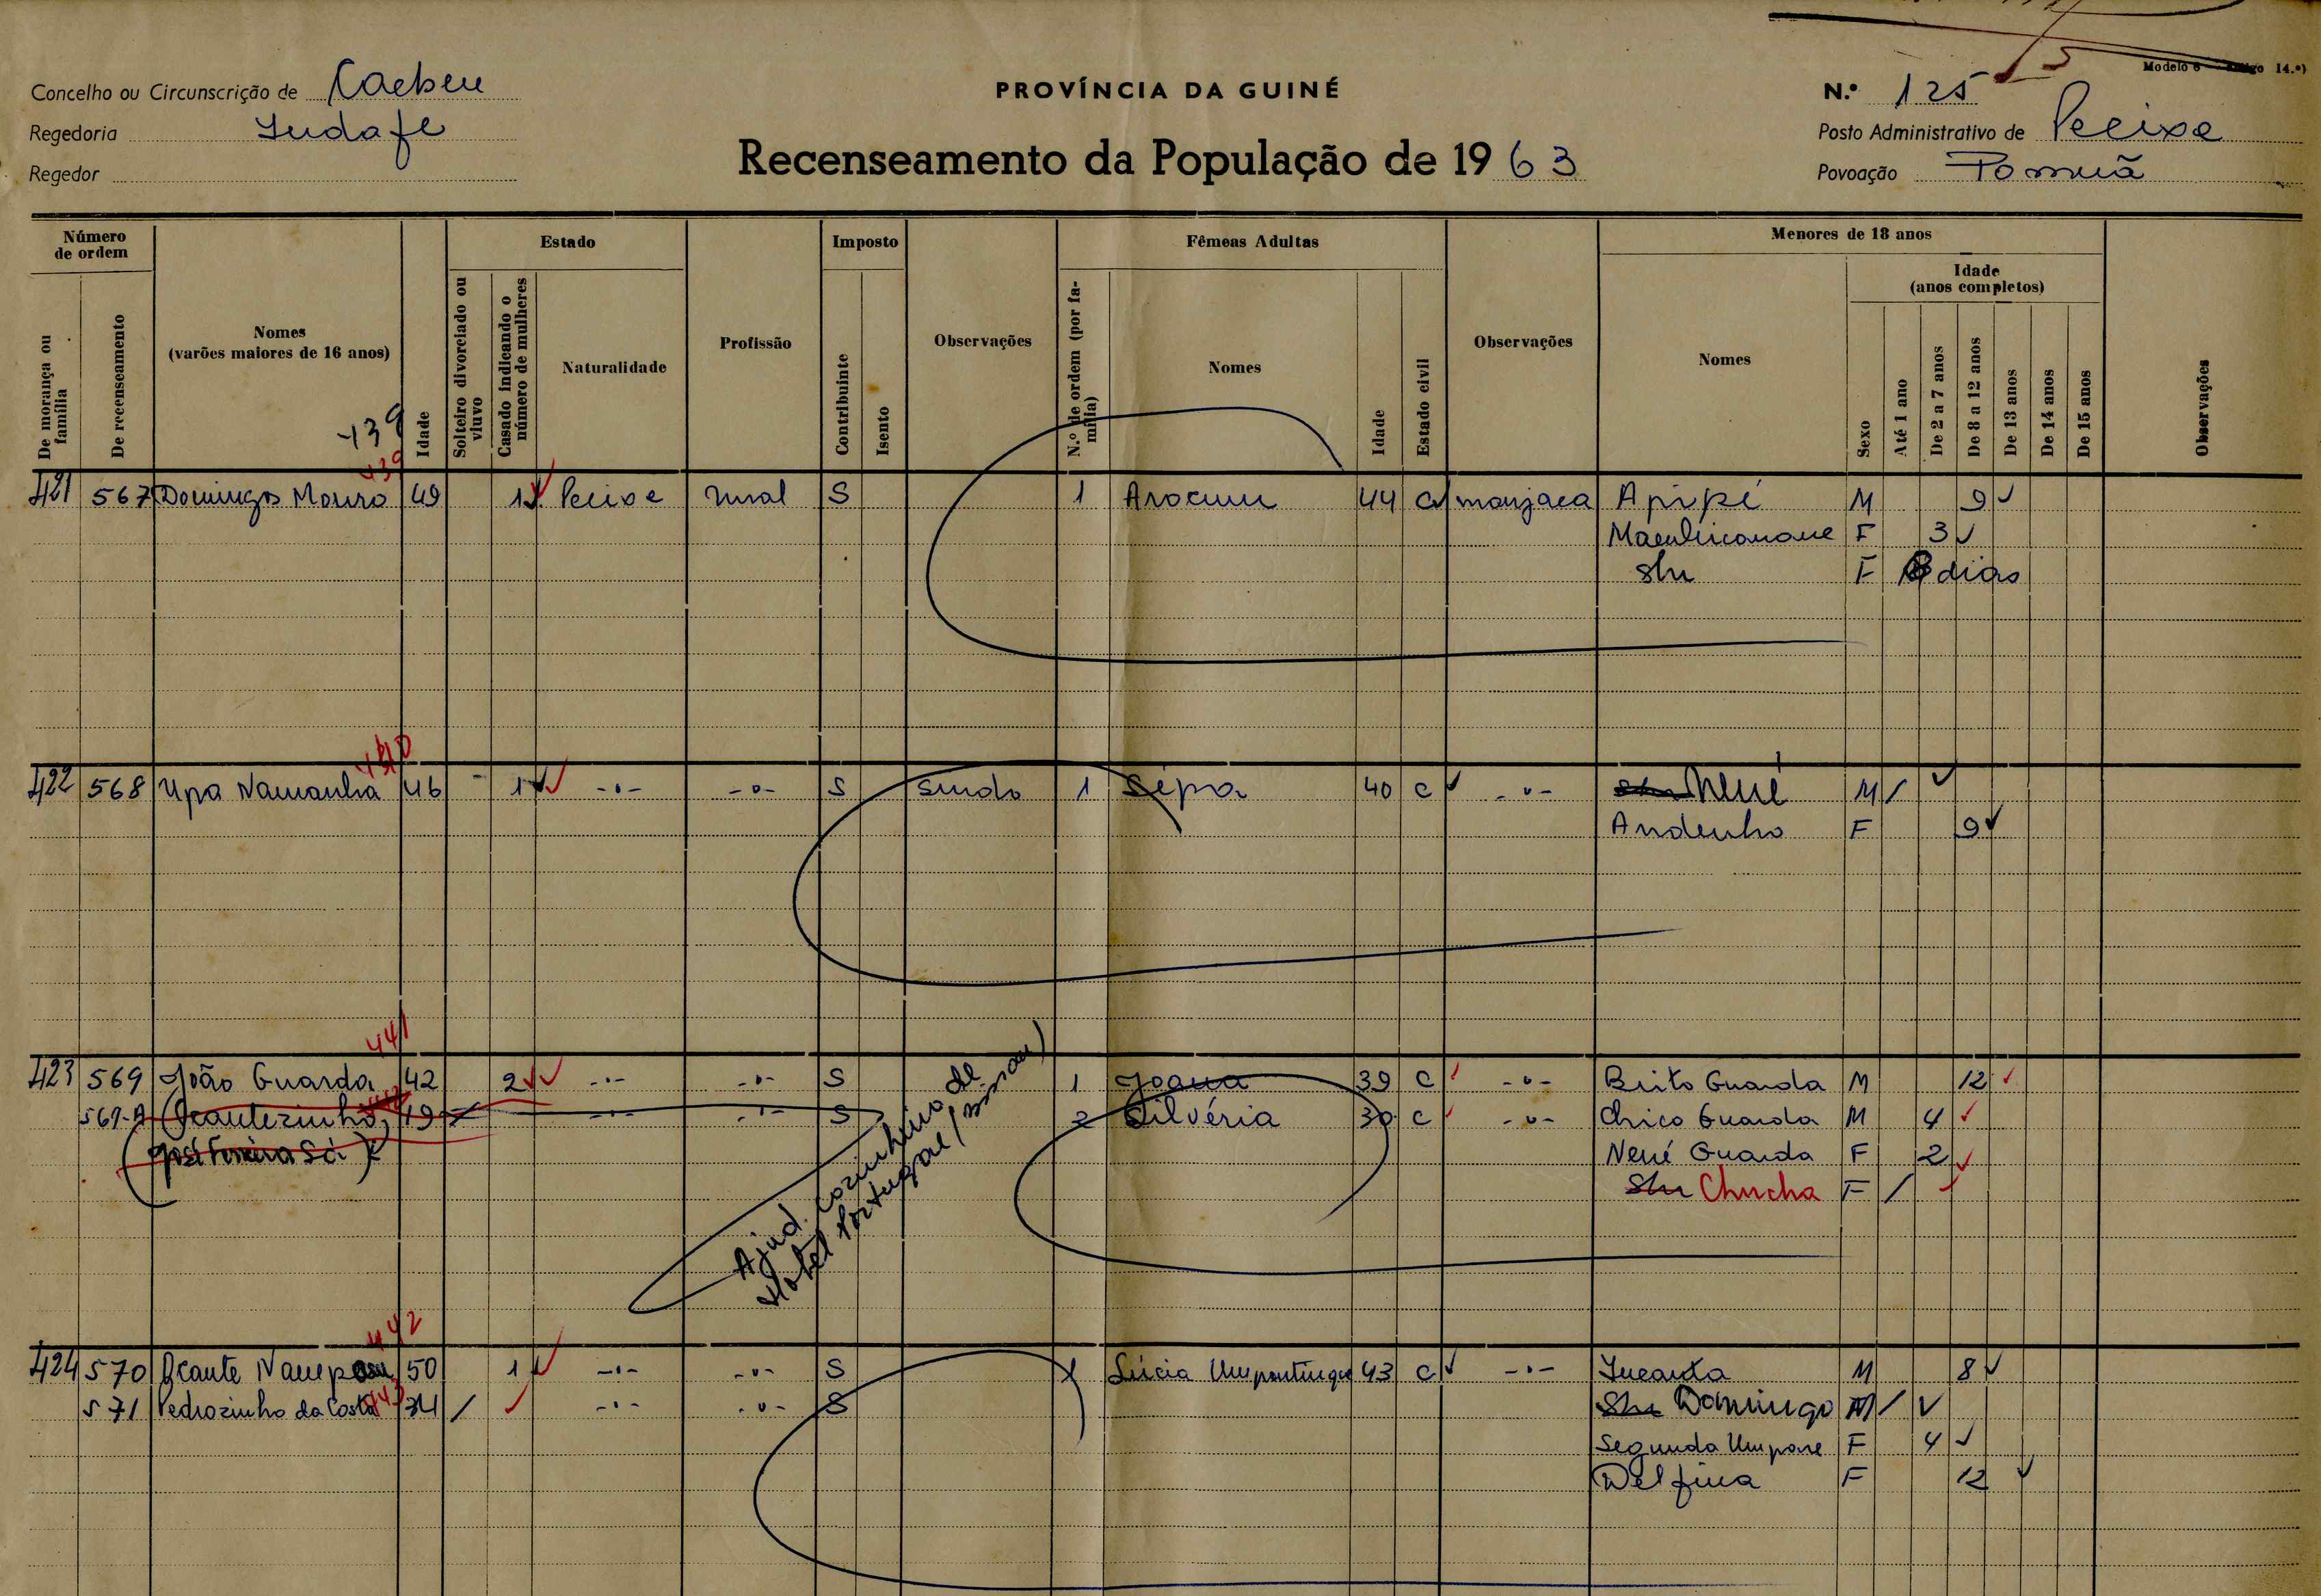 Modelo 6 14.º)
Concelho ou Circunscrição de Caebeu
PROVÍNCIA DA GUINÉ
N.º 125
Regedoria Indafe
Posto Administrativo de Pecixe
Regedor
Recenseamento da População de 1963
Povoação Pomuã
Número de ordem
Estado
Imposto
Fêmeas Adultas
Menores de 18 anos
Idade (anos completos)
De morança ou família
De recenseamento
Nomes (varões maiores de 16 anos)
Idade
Solteiro divorciado ou viuvo
Casado indicando o número de mulheres
Naturalidade
Profissão
Contribuinte
Isento
Observações
N.º de ordem (por família)
Nomes
Idade
Estado civil
Observações
Nomes
Sexo
Até 1 ano
De 2 a 7 anos
De 8 a 12 anos
De 13 anos
De 14 anos
De 15 anos
Observações
439
439
421 567 Domingos Mouro 49 1 Pecixe rural S 1 Arocum 44 C manjaca Apipé M 9
F 3
S/n F 8 dias
440
422 568 Upa Namanha 46 1 -"- -"- S surdo 1 Sépa 40 C -"- S/n Nené M /
Andenho F 9
441
423 569 João Guarda 42 2 -"- -"- S 1 Joana 39 C -"- Brito Guarda M 12
569-A Ocantezinho 19 -"- -"- S 2 Silvéria 30 C -"- Chico Guarda M 4
Nené Guarda F 2
S/n Chucha F /
Ajud. Cozinheiro de
Hotel Portugal
442
424 570 Ocante 50 1 -"- -"- S 1 Lúcia 43 C -"- M 8
571 Pedrozinho da Costa 34 / -"- -"- S S/n Domingo M /
Segunda Umpane F 4
Delfina F 12